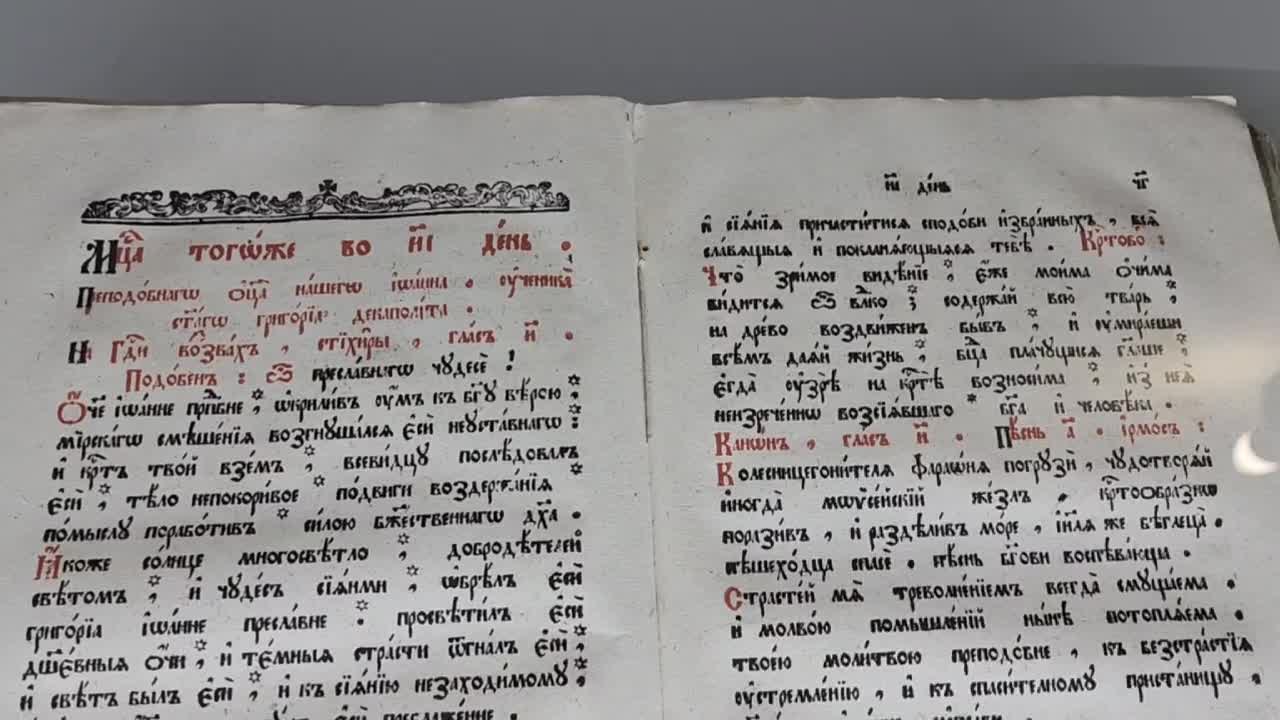 Мц҃а тогѡ́же во и҃і де́нь .
Преподо́бнагѡ ѻ҆ц҃а̀ на́шегѡ і҆ѡа́нна . ѹ҆ченика̀
ст҃а́гѡ григо́рїа декаполи́та .
На Гдⷭ҇и воззва́хъ , стїхи̑ры , гла́съ и҃ .
Подо́бенъ : Ѽ пресла́внагѡ чудесѐ !
Ѻ҆́ч҃е і҆ѡа́нне прпⷣбне , ѡ҆крили́въ ѹ҆́мъ къ бг҃ѹ вѣ́рою ,
мі́рскагѡ смѣше́нїѧ возгнѹша́лсѧ є҆сѝ неѹста́внагѡ :
и҆ крⷭ҇тъ тво́й взе́мъ , всеви́дцѹ послѣ́довалъ
є҆сѝ , тѣ́ло непокори́вое по́двиги воздержа́нїѧ
по́мыслѹ порабо́тивъ си́лою бж҃е́ственнагѡ дх҃а .
Ꙗ҆́коже со́лнце многосвѣ́тло , добродѣ́телей
свѣ́томъ , и҆ чѹде́съ сїѧ́ньми , ѡ҆брѣ́лъ є҆сѝ
григо́рїа і҆ѡа́нне пресла́вне . просвѣти́лъ є҆сѝ
дш҃є́вныѧ ѻ҆́чи , и҆ тє́мныѧ стра́сти ѿгна́лъ є҆сѝ ,
и҆ свѣ́тъ бы́лъ є҆сѝ , и҆ къ сїѧ́нїю незаходи́момѹ ,
є҆сѝ пребл҃же́нне
и҃і де́нь
чг҃
и҆ сїѧ́нїѧ причасти́тисѧ сподо́би и҆збра́нныхъ , всѧ̑
сла́вѧщыѧ и҆ покланѧ́ющыѧсѧ тебѣ̀ . Крⷭ҇тобо :
Что̀ зри́мое видѣ́нїе , є҆́же мои́ма ѻ҆чи́ма
ви́дитсѧ ѽ влⷣко ; содержа́й всю̀ тва́рь ,
на дре́во воздви́женъ бы́въ , и҆ ѹ҆мира́еши
всѣ́мъ даѧ́й жи́знь , бц҃а пла́чѹщисѧ гл҃аше ,
є҆гда̀ ѹ҆зрѣ̀ на крⷭ҇тѣ̀ возноси́ма , и҆з̾ неѧ̀
неизрече́ннѡ возсїѧ́вшаго бг҃а и҆ человѣ́ка .
Канѡ́нъ , гла́съ и҃ . Пѣ́снь а҃ . і҆рмо́съ :
Колесницегони́телѧ фараѡ́на погрѹзѝ , чѹдотворѧ́й
и҆ногда̀ мѡѷсе́йскїй же́злъ , крⷭ҇тоо́бразнѡ
порази́въ , и҆ раздѣли́въ мо́ре , і҆и҃лѧ же бѣглеца̀ .
пѣшехо́дца спасѐ . пѣ́снь бг҃ови воспѣва́юща .
Страсте́й мѧ̀ треволне́нїемъ всегда̀ смѹща́ема
и҆ молво́ю помышле́нїй ны́нѣ потоплѧ́ема .
твоє́ю моли́твою преподо́бне , къ безстра́стїѧ
ѹ҆стремле́нїю , и҆ къ спаси́телномѹ приста́нищѹ ,